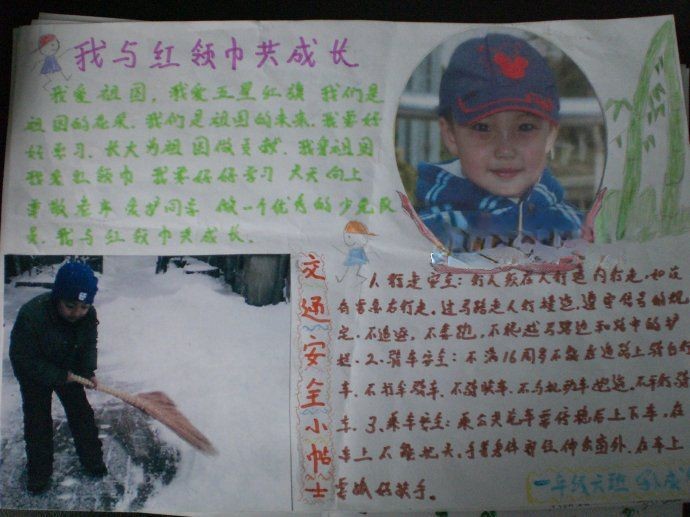 我与红领巾共成长
我爱祖国,我爱五星红旗 我们是
祖国的花朵.我们是祖国的未来.我要好
好学习.长大为祖国做贡献.我爱祖国
我爱红领巾 我要好好学习 天天向上
尊敬老师 爱护同学 做一个优秀的少先队
员.我与红领巾共成长.
交通安全小帖士
1.行走安全:行人须在人行道内行走,和没
有 靠右行走.过马路走人行横道,遵守信号的规
定.不追逐,不奔跑,不跨越马路边和路中的护
栏.2.骑车安全:不满16周岁不能在道路上骑自行
车.不 车.不骑快车.不与机动车
车.3.乘车安全:乘公共汽车要待稳后上下车,在
车上不能把头,手等身体部位伸出窗外.在车上
要抓好扶手.
一年级六班